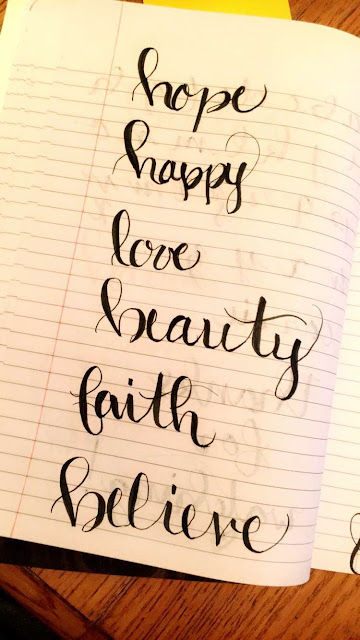 hope
happy
love
beauty
faith
believe